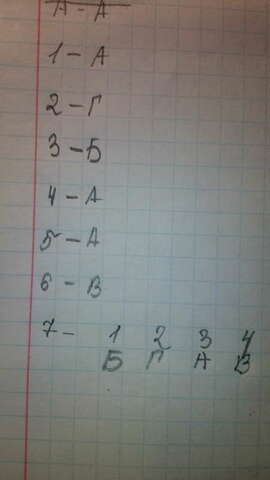 А - А
1 - А
2 - Г
3 - Б
4 - А
5 - А
6 - В
7 - 1 2 3 4
Б Г А В